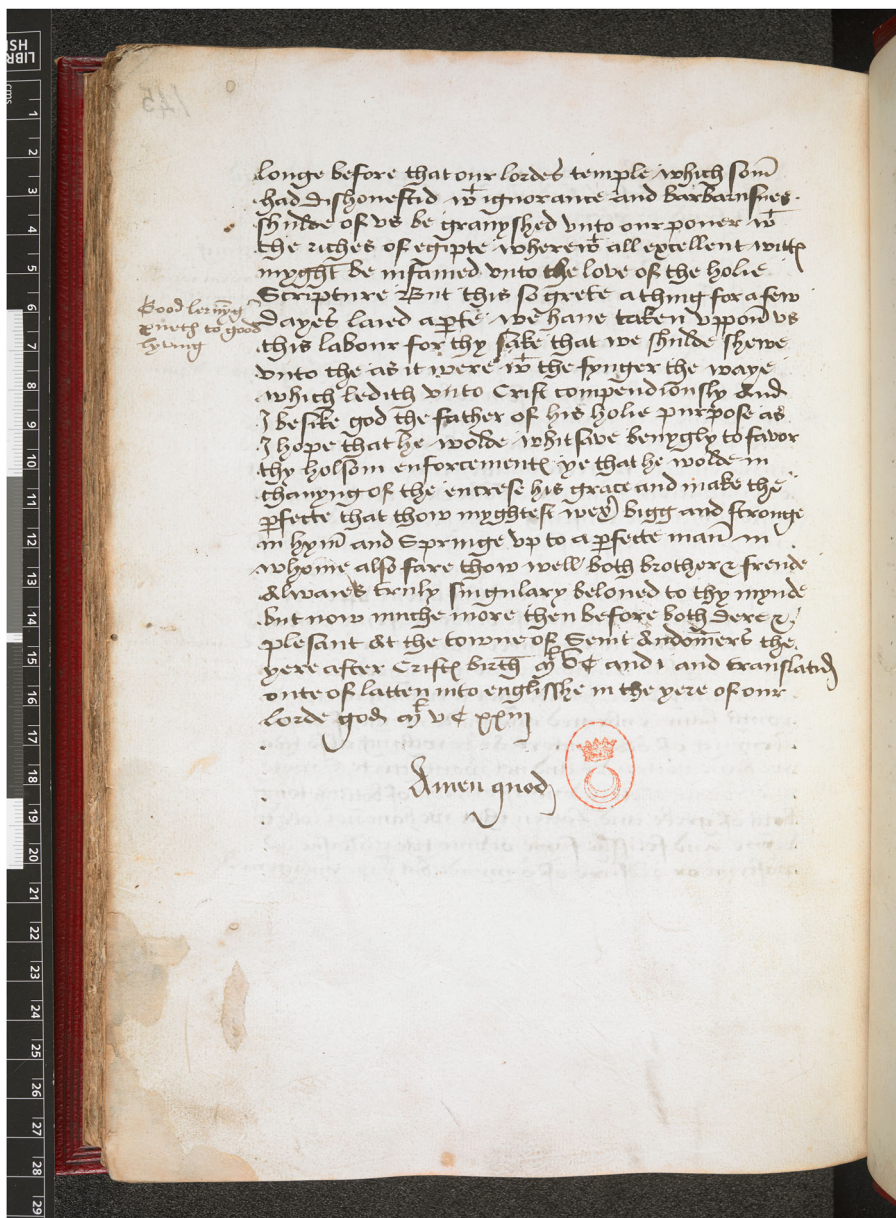 longe before that our lordes temple which som̄
had dishonestid wt ignorance and barbarusnes
shulde of vs be granyshed vnto our power wt
the riches of egipte wherewt all excellent witt
myght be infamed vnto the love of the holie
Scripture But this so grete a thing for a few
dayes laied aparte we have taken vppon vs
this labour for thy sake that we shulde shewe
vnto the as it were wt the fynger the waye
which ledith vnto Crist compendiously And
I beseke god the father of his holie purpose as
I hope that he wolde whitsave benygly to favor
thy holsom enforcement ye that he wolde in
chanyng of the encrese his grace and make the
pfecte that thow myghtest wex bigg and stronge
in hym̄ and Springe vp to a pfecte man̄ in
whome also fare thow well both brother & frende
Alwaies truly singulary beloued to thy mynde
but now muche more then before both dere &
plesant At the towne of Seint Andomers the
yere after Crist birth m v C and i and translatid
oute of latten into englisshe in the yere of our
lorde god m v C xxiij
Amen quod
Good lernyg
to good
lyving
145